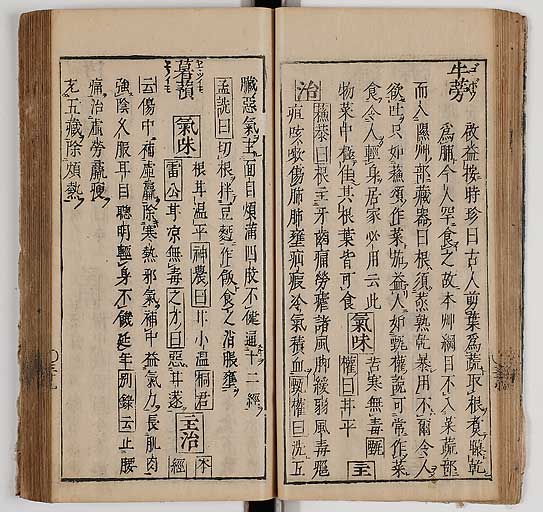 牛蒡
啟益按時珍曰古人剪葉為蔬取根煮曝乾
為脯今人罕食之故本艸綱目不入菜蔬部
而入隰艸部藏器曰根須蒸熟乾暴用不爾令人
欲吐只如蘇須作菜施益人如甄權說可常作菜
食令人輕身居家必用云此
物菜中極佳其根葉皆可食 氣味 苦寒無毒甄
權曰甘平 主
治 蘇恭曰根主牙齒痛勞瘧諸風脚緩弱風毒癰
疽咳嗽傷肺肺壅疝瘕冷氣積血甄權曰洗五
臟惡氣主面目煩滿四肢不健通十二經
孟詵曰切根拌豆麪作飯食之消脹壅
薯蕷 氣味 根甘溫平神農曰甘小溫桐君
雷公甘涼無毒之才曰惡甘遂 主治 本
經
云傷中補虛羸除寒熱邪氣補中益氣力長肌肉
強陰久服耳目聰明輕身不饑延年別錄云止腰
痛治虛勞羸瘦
充五藏除煩熱